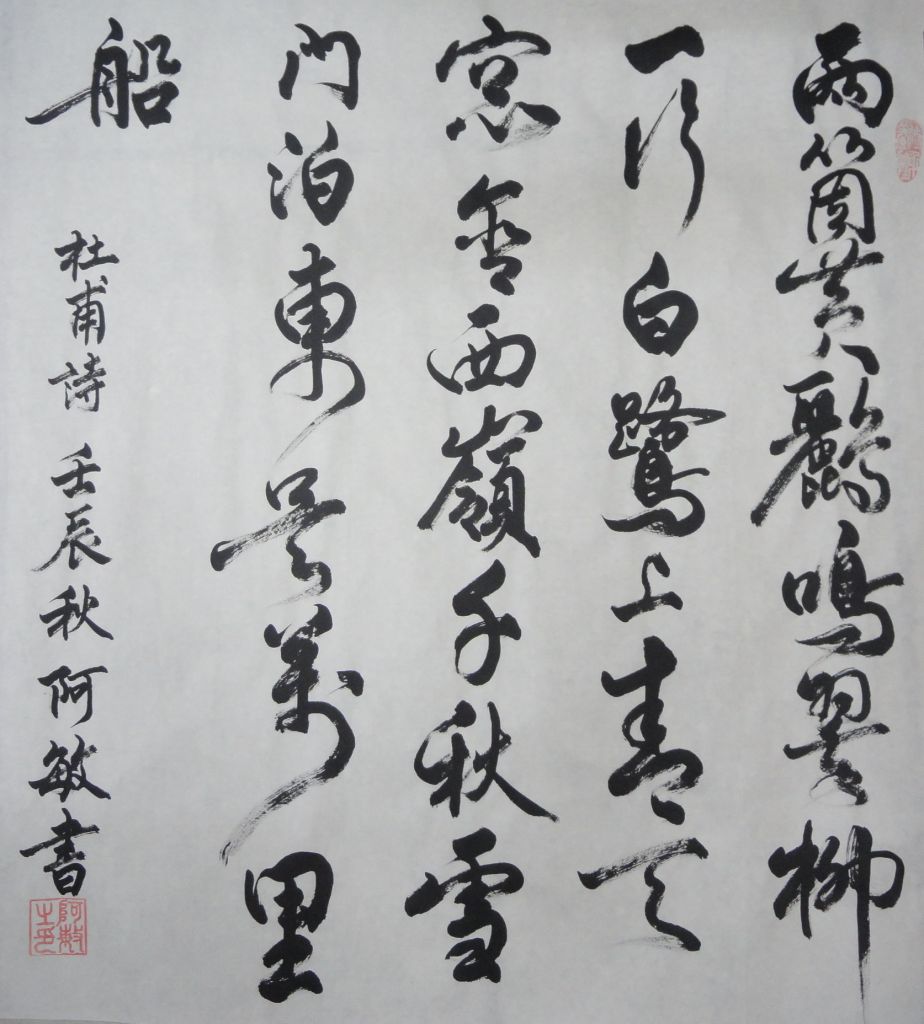 兩箇黃鸝鳴翠柳
一行白鷺上青天
窓含西嶺千秋雪
門泊東吳萬里
船
杜甫詩 壬辰秋 阿敏書
阿敏之印